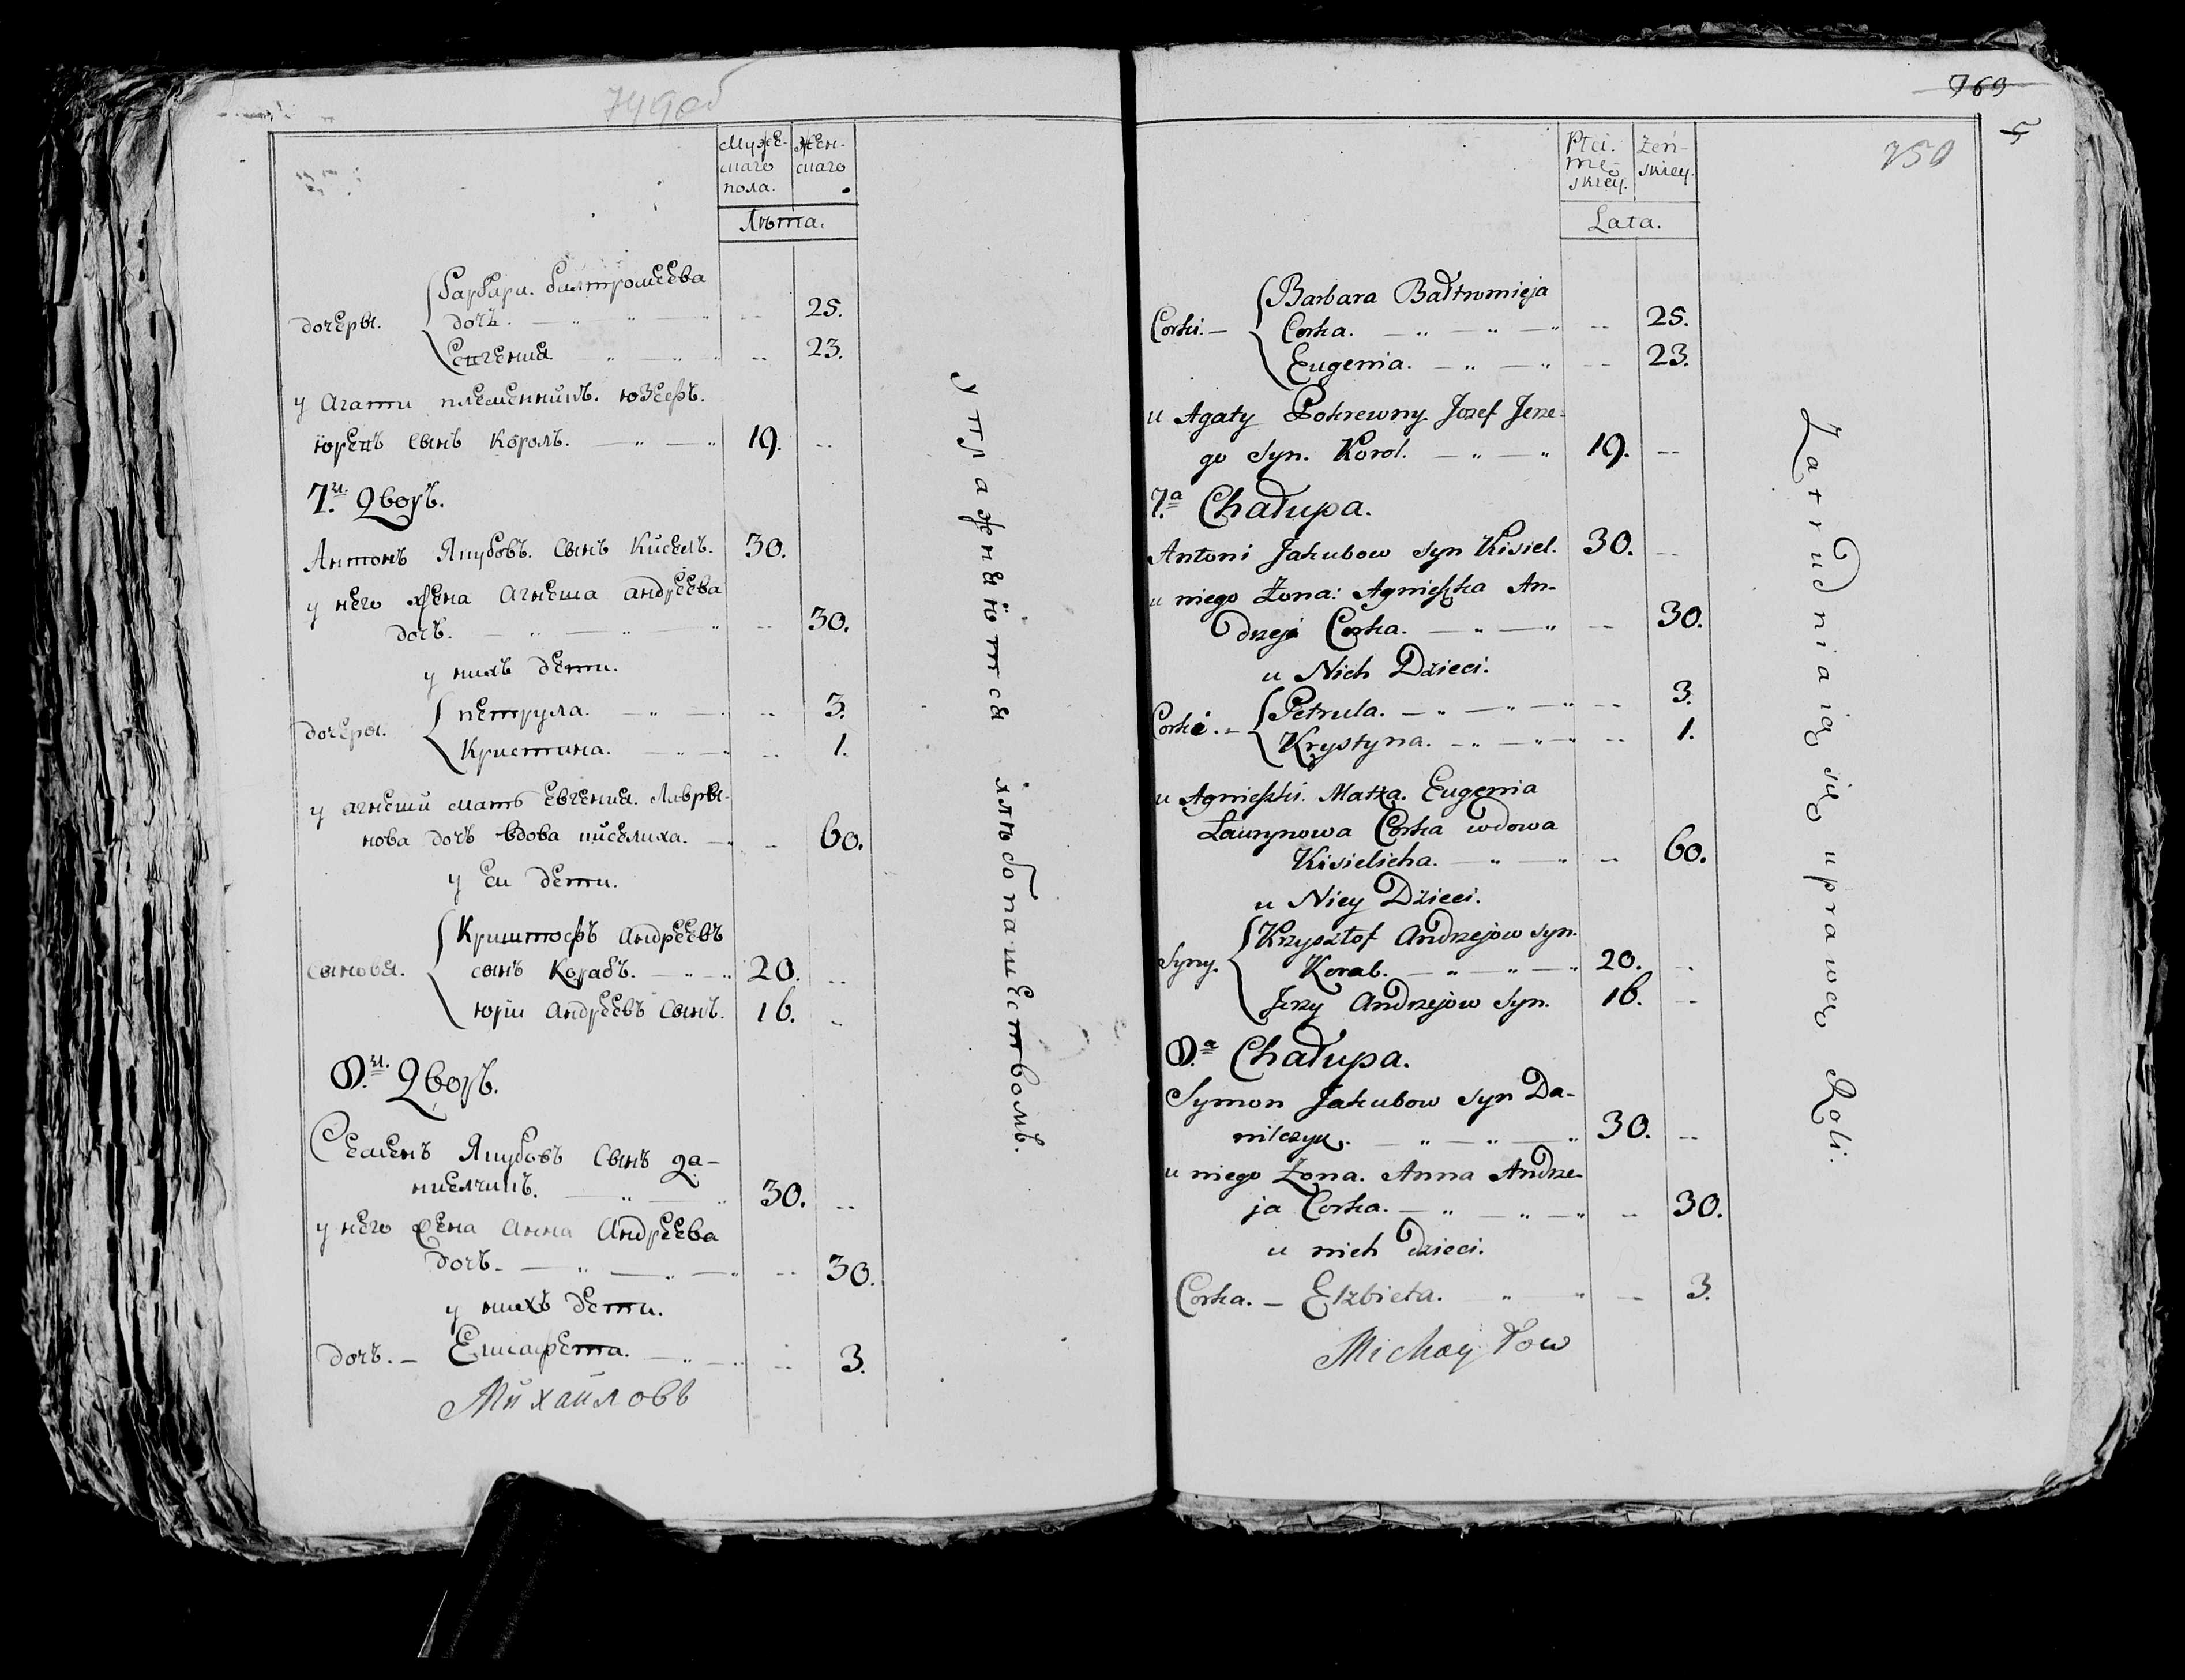 749об
Муже-
скаго
пола.
жен-
скаго
Лѣта.
дочеры.
Барбара. балтромеева
дочъ. 25.
Евгения 23.
у Агати племенникъ. юзефъ.
юревъ сынъ Король. 19.
7.й Дворъ.
Антонъ Якубовъ. Сынъ Кисель. 30.
у него жена Агнеша андреева
дочъ. 30.
у нихъ дети.
дочеры.
петрула. 3.
Кристина. 1.
у агнеши мать Евгения. Лавры-
нова дочъ вдова киселиха. 60.
у ей дети.
сыновя.
Криштофъ Андреевъ
сынъ Корабъ. 20.
юрiи Андреевъ Сынъ. 16.
8.й Дворъ.
Семенъ Якубовъ Сынъ да-
ниелчикъ. 30.
у него жена Анна Андреева
дочъ. 30.
у нихъ дети.
дочъ. Елисафета. 3.
Михайловъ
упражняются хлѣбопашествомъ.
769
5
750
Płci.
mę-
skiey.
żeń-
skiey.
Lata.
Corki.
Barbara Bałtromieja
Corka. 25.
Eugenia. 23.
u Agaty Pokrewny Jozef Jerze-
go Syn. Korol. 19.
7.a Chałupa.
Antoni Jakubow Syn Kisiel. 30.
u niego Żona: Agnieszka An-
drzeja Corka. 30.
u Nich Dzieci.
Corki.
Petrula. 3.
Krystyna. 1.
u Agnieszki. Matka. Eugenia
Laurynowa Corka wdowa
Kisielicha. 60.
u Niey Dzieci.
Syny.
Krzysztof Andrzejow syn.
Korab. 20.
Jerzy Andrzejow Syn. 16.
8.a Chałupa.
Symon Jakubow syn Da-
nilczyk. 30.
u niego Żona. Anna Andrze-
ja Corka. 30.
u nich dzieci.
Corka. Elzbieta. 3.
Michayłow
Zatrudniaią się uprawą Roli.